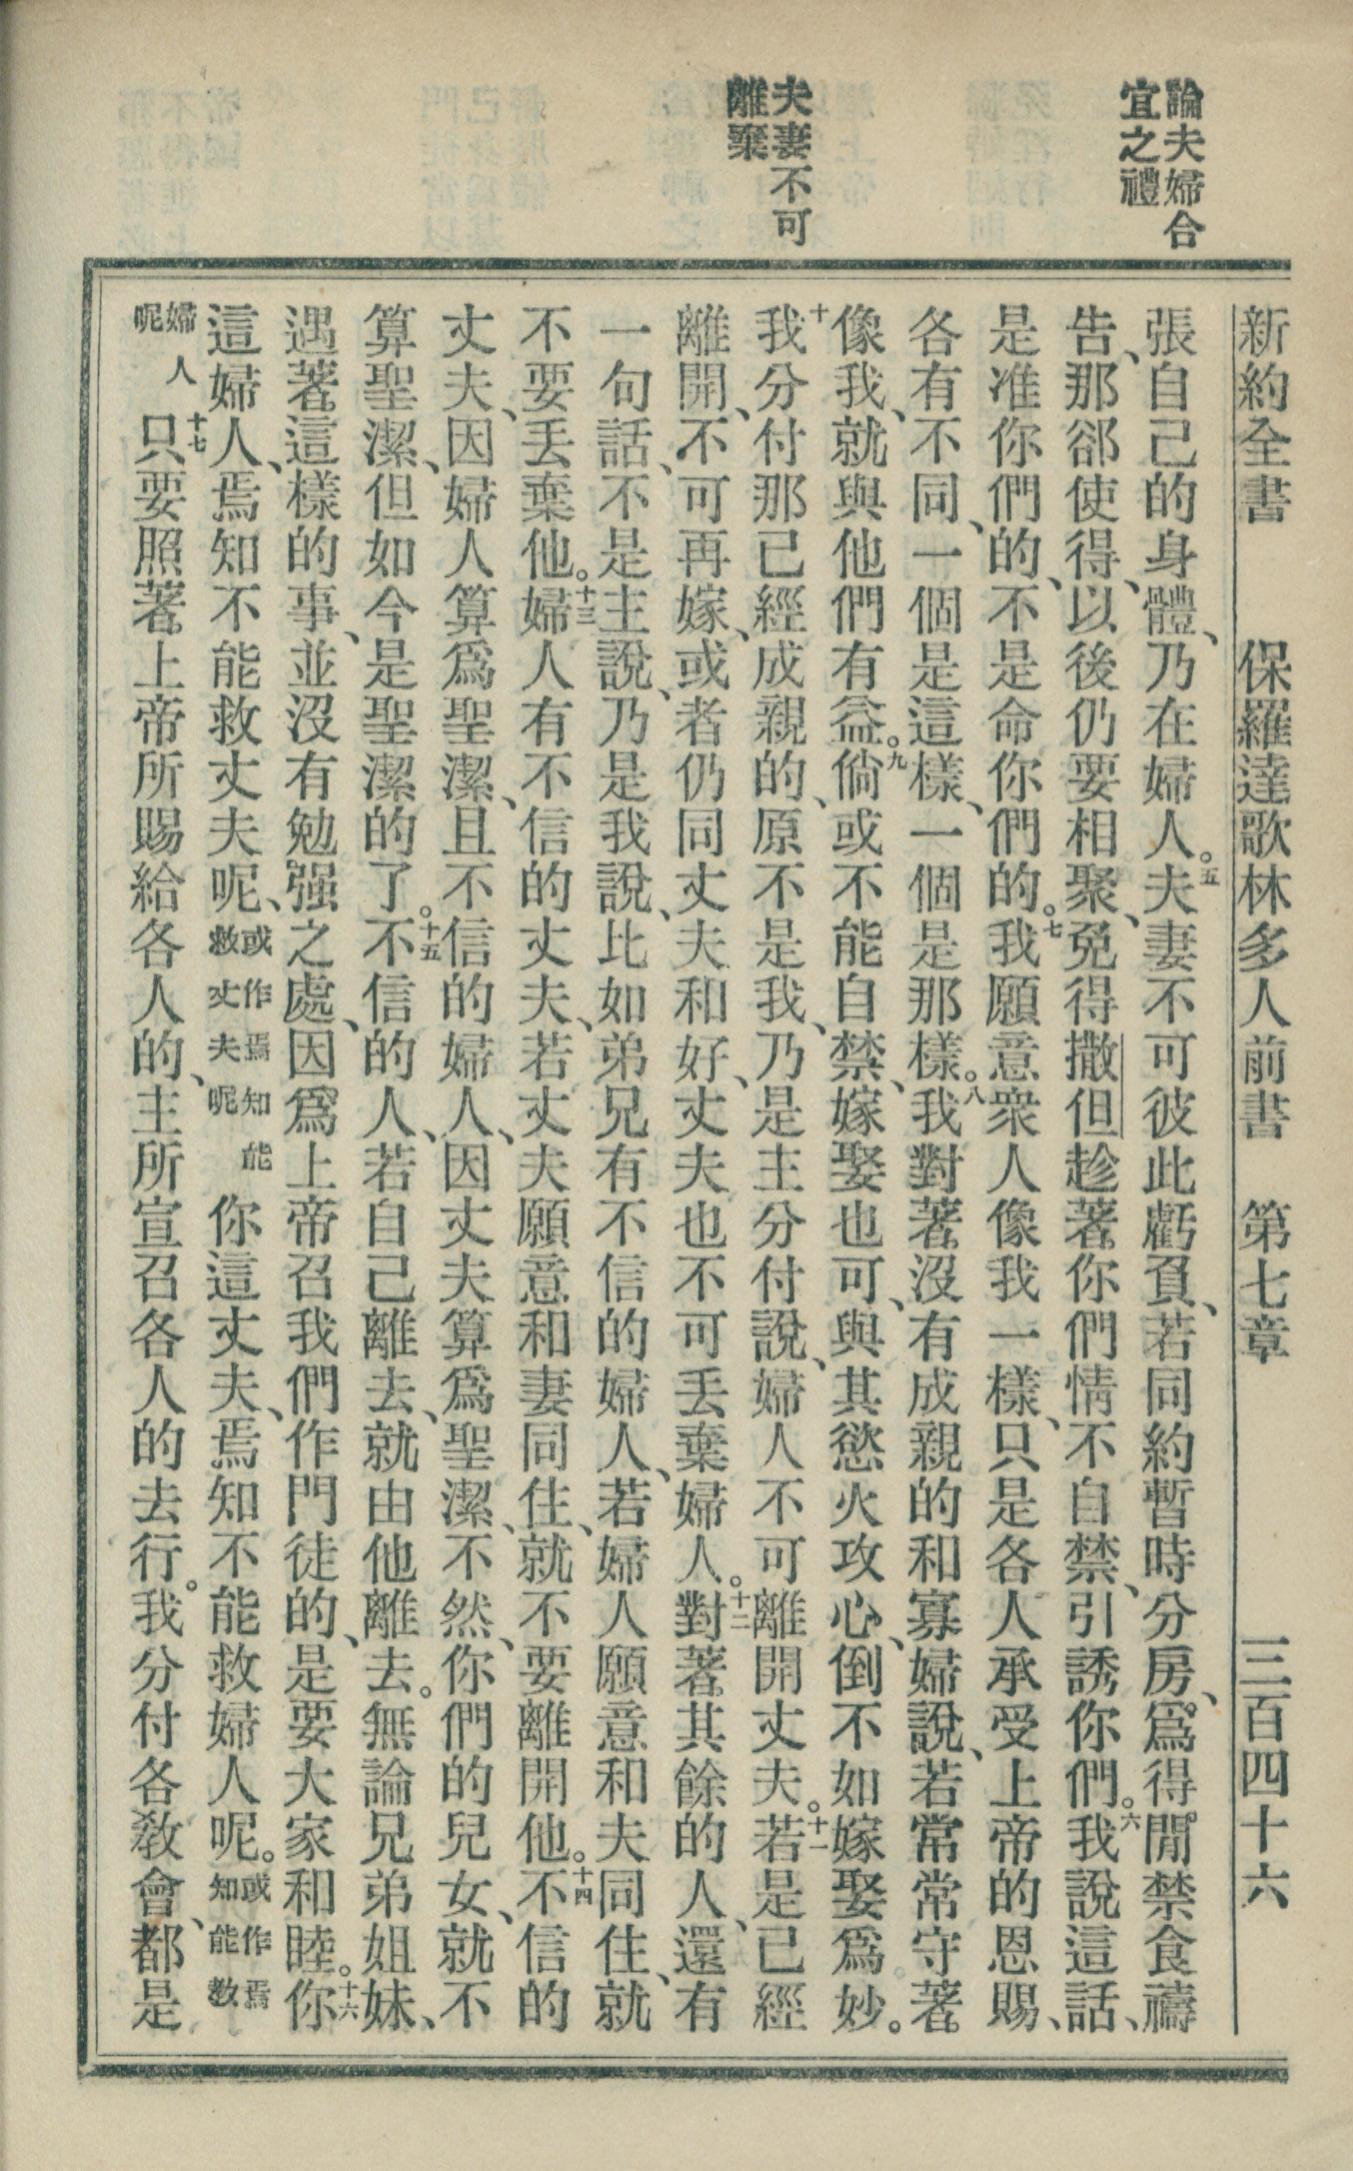 論夫婦合
宜之禮
夫妻不可
離棄
新約全書 保羅達歌林多人前書 第七章 三百四十六
張自己的身體、乃在婦人。五夫妻不可彼此虧負、若同約暫時分房、爲得閒禁食禱
告、那郤使得、以後仍要相聚、免得撒但趁著你們情不自禁、引誘你們。六我說這話、
是准你們的、不是命你們的。七我願意衆人像我一樣、只是各人承受上帝的恩賜、
各有不同、一個是這樣、一個是那樣。八我對著沒有成親的和寡婦說、若常常守著
像我、就與他們有益。九倘或不能自禁、嫁娶也可、與其慾火攻心、倒不如嫁娶爲妙。
十我分付那已經成親的、原不是我、乃是主分付說、婦人不可離開丈夫。十一若是已經
離開、不可再嫁、或者仍同丈夫和好、丈夫也不可丢棄婦人。十二對著其餘的人、還有
一句話、不是主說、乃是我說、比如弟兄有不信的婦人、若婦人願意和夫同住、就
不要丢棄他。十三婦人有不信的丈夫、若丈夫願意和妻同住、就不要離開他。十四不信的
丈夫、因婦人算爲聖潔、且不信的婦人、因丈夫算爲聖潔、不然、你們的兒女、就不
算聖潔、但如今是聖潔的了。十五不信的人、若自己離去、就由他離去。無論兄弟姐妹、
遇著這樣的事、並沒有勉强之處、因爲上帝召我們作門徒的、是要大家和睦。十六你
這婦人、焉知不能救丈夫呢、或作焉知能救丈夫呢你這丈夫、焉知不能救婦人呢。或作焉知能救
婦人呢十七只要照著上帝所賜給各人的、主所宣召各人的去行。我分付各敎會、都是